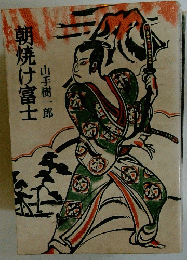 朝焼け富士
山手樹一郎